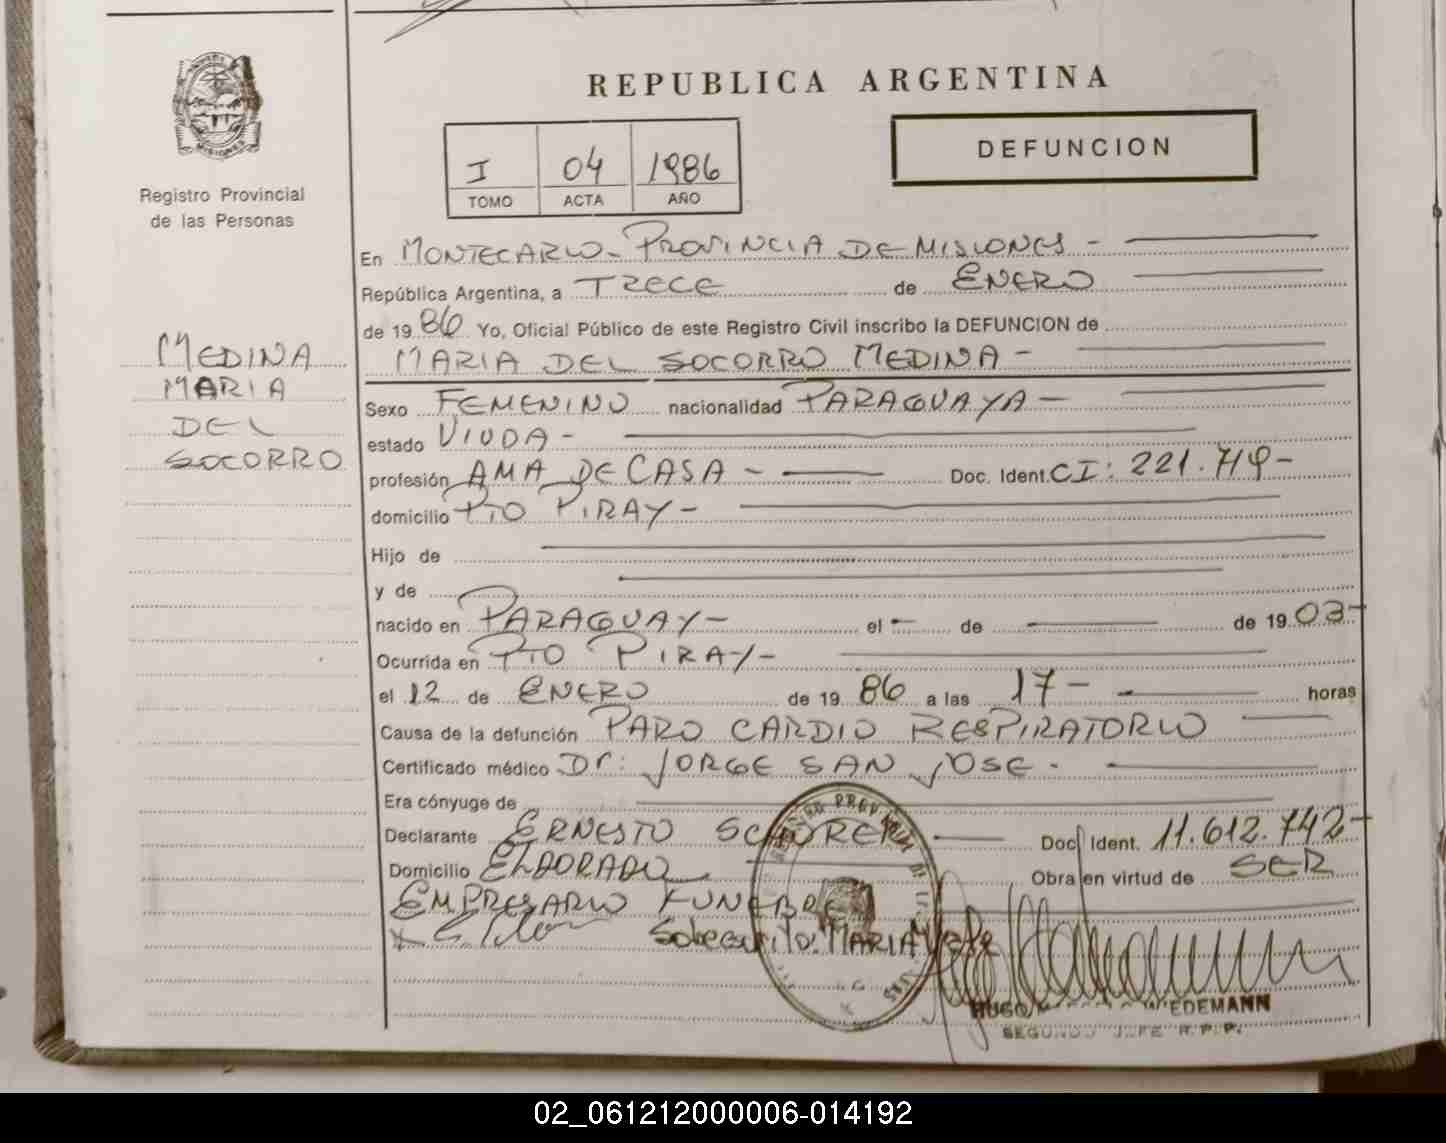 REPUBLICA ARGENTINA
DEFUNCION
I 04 1986
TOMO ACTA AÑO
MISIONES
Registro Provincial
de las Personas
MEDINA
MARIA
DEL
SOCORRO
En MONTECARLO - PROVINCIA DE MISIONES -
República Argentina, a TRECE de ENERO
de 19 86 Yo, Oficial Público de este Registro Civil inscribo la DEFUNCION de
MARIA DEL SOCORRO MEDINA -
Sexo FEMENINO nacionalidad PARAGUAYA -
estado VIUDA -
profesión AMA DE CASA - Doc. Ident. CI: 221.719 -
domicilio PTO PIRAY -
Hijo de
y de
nacido en PARAGUAY - el - de de 19 03 -
Ocurrida en PTO PIRAY -
el 12 de ENERO de 19 86 a las 17 - horas
Causa de la defunción PARO CARDIO RESPIRATORIO
Certificado médico Dr: JORGE SAN JOSE.
Era cónyuge de
Declarante ERNESTO Doc. Ident. 11.612.742 -
Domicilio ELDORADO Obra en virtud de SER
EMPRESARIO FUNEBRE
MARIA
HUGO WIEDEMANN
SEGUNDO JEFE R.P.P.
02_061212000006-014192